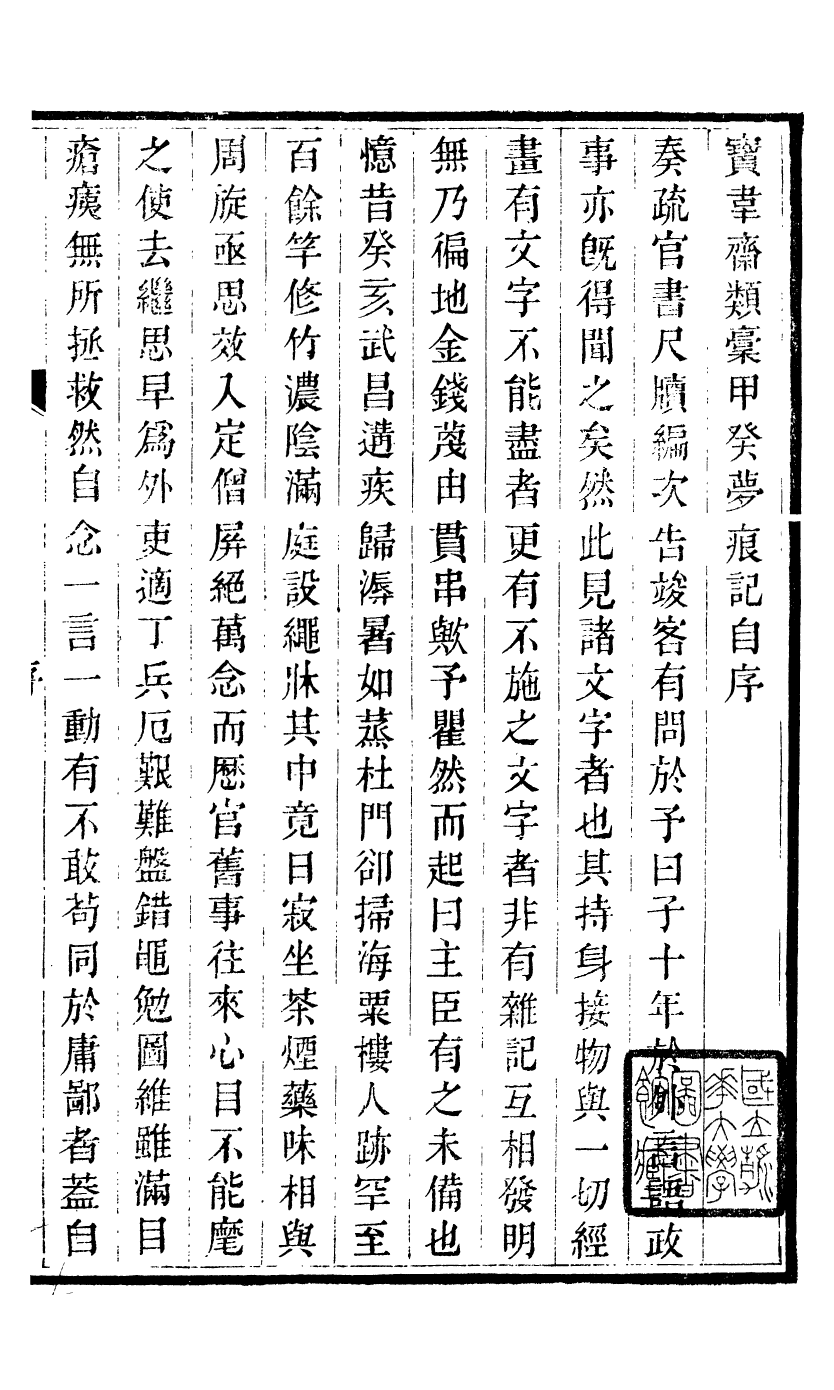 寶韋齋類稾甲癸夢痕記自序
奏疏官書尺牘編次告竣客有問於予曰子十年於外言語政
事亦旣得聞之矣然此見諸文字者也其持身接物與一切經
畫有文字不能盡者更有不施之文字者非有雜記互相發明
無乃徧地金錢蔑由貫串歟予瞿然而起曰主臣有之未備也
憶昔癸亥武昌遘疾歸溽暑如蒸杜門卻掃海粟樓人跡罕至
百餘竿修竹濃陰滿庭設繩牀其中竟日寂坐茶煙藥味相與
周旋亟思效入定僧屏絕萬念而歷官舊事往來心目不能麾
之使去繼思早爲外吏適丁兵厄艱難盤錯黽勉圖維雖滿目
瘡痍無所拯救然自念一言一動有不敢茍同於庸鄙者葢自
序
國立淸華大學圖書館藏